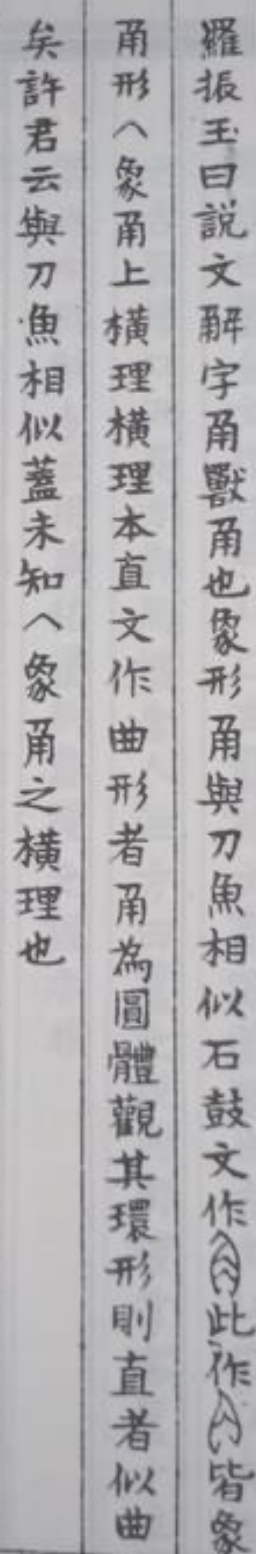 羅振玉曰說文解字角獸角也象形角與刀魚相似石鼓文作此作皆象
角形𠆢象角上橫理橫理本直文作曲形者角為圓體觀其環形則直者似曲
矣許君云與刀魚相似蓋未知𠆢象角之橫理也